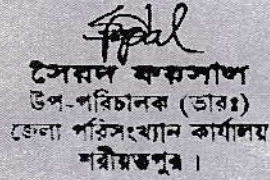 সৈয়দ ফয়সাল
উপ-পরিচালক (ভারঃ)
জেলা পরিসংখ্যান কার্যালয়
শরীয়তপুর ।